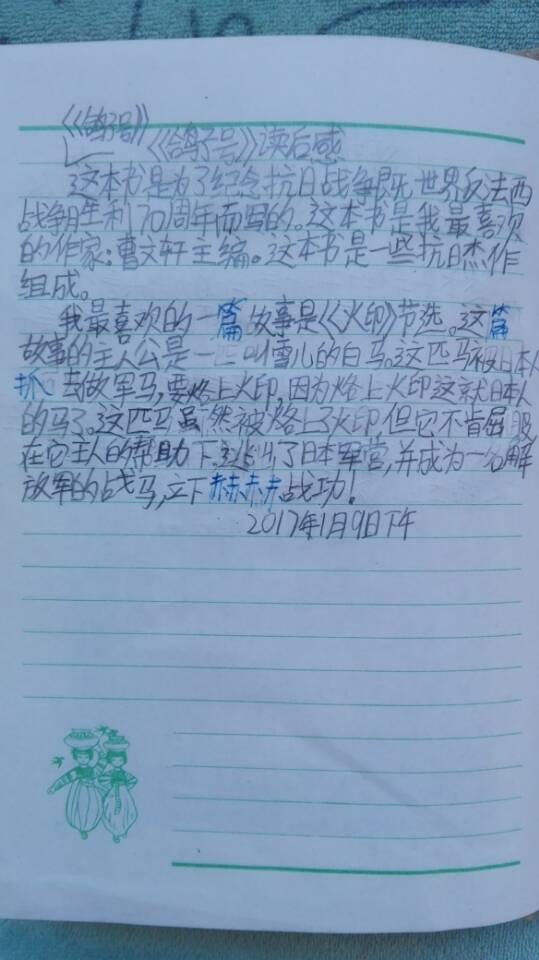 《鸽子号》
《鸽子号》读后感
这本书是为了纪念抗日战争既世界反法西
战争胜利70周年而写的。这本书是我最喜欢
的作家:曹文轩主编。这本书是一些抗日杰作
组成。
我最喜欢的一篇故事是《火印》节选。这篇
故事的主人公是一匹叫雪儿的白马。这匹马被日本人
抓去做军马,要烙上火印,因为烙上火印这就日本人
的马了。这匹马虽然被烙上了火印,但它不肯屈服
在它主人的帮助下逃出了日本军营,并成为一名解
放军的战马,立下赫赫战功!
2017年1月9日下午